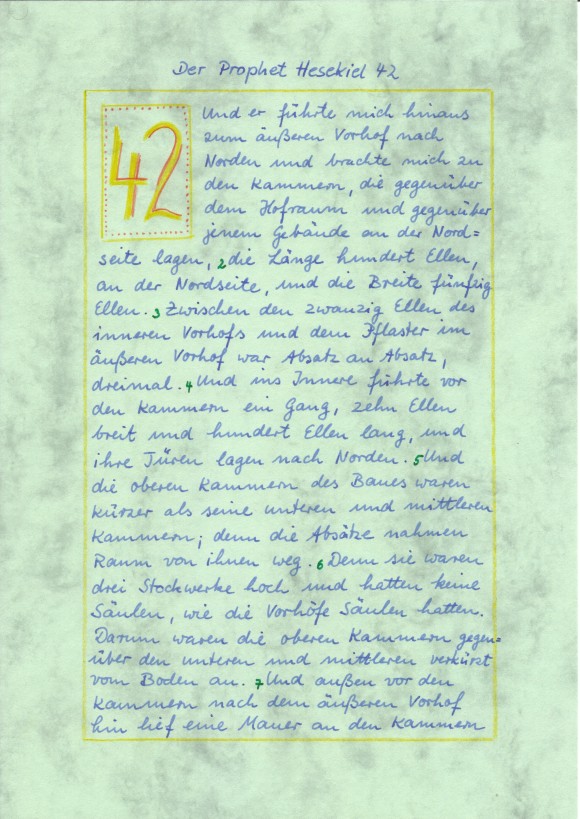 Der Prophet Hesekiel 42
42
Und er führte mich hinaus
zum äußeren Vorhof nach
Norden und brachte mich zu
den Kammern, die gegenüber
dem Hofraum und gegenüber
jenem Gebäude an der Nord=
seite lagen, 2 die Länge hundert Ellen,
an der Nordseite, und die Breite fünfzig
Ellen. 3 Zwischen den zwanzig Ellen des
inneren Vorhofs und dem Pflaster im
äußeren Vorhof war Absatz an Absatz,
dreimal. 4 Und ins Innere führte vor
den Kammern ein Gang, zehn Ellen
breit und hundert Ellen lang, und
ihre Türen lagen nach Norden. 5 Und
die oberen Kammern des Baues waren
kürzer als seine unteren und mittleren
Kammern; denn die Absätze nahmen
Raum von ihnen weg. 6 Denn sie waren
drei Stockwerke hoch und hatten keine
Säulen, wie die Vorhöfe Säulen hatten.
Darum waren die oberen Kammern gegen=
über den unteren und mittleren verkürzt
vom Boden an. 7 Und außen vor den
Kammern nach dem äußeren Vorhof
hin lief eine Mauer an den Kammern